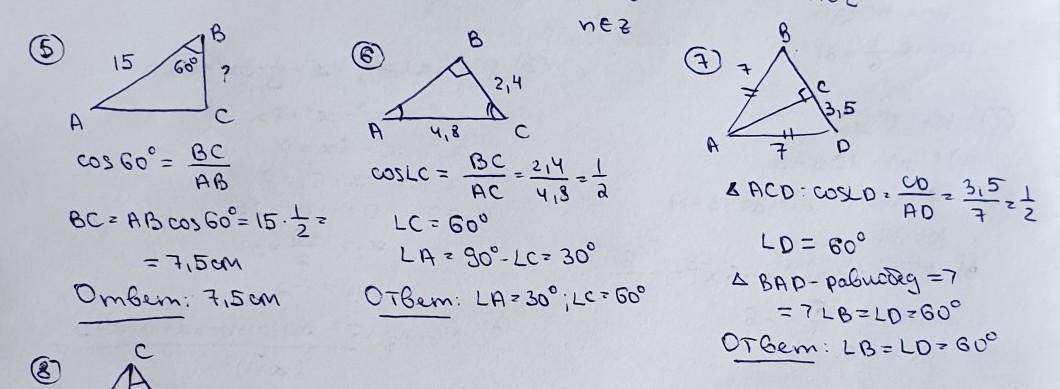 n∈z
5
B
15
60°
?
A
C
cos60° = BC/AB
BC = AB cos60° = 15 · 1/2 =
= 7,5см
Ответ: 7,5см
6
B
2,4
A
4,8
C
cos∠C = BC/AC = 2,4/4,8 = 1/2
∠C = 60°
∠A = 90° - ∠C = 30°
Ответ: ∠A = 30°; ∠C = 60°
7
B
7
C
3,5
A
7
D
Δ ACD: cos∠D = CD/AD = 3,5/7 = 1/2
∠D = 60°
Δ BAD - равнобед =>
=> ∠B = ∠D = 60°
Ответ: ∠B = ∠D = 60°
8
C